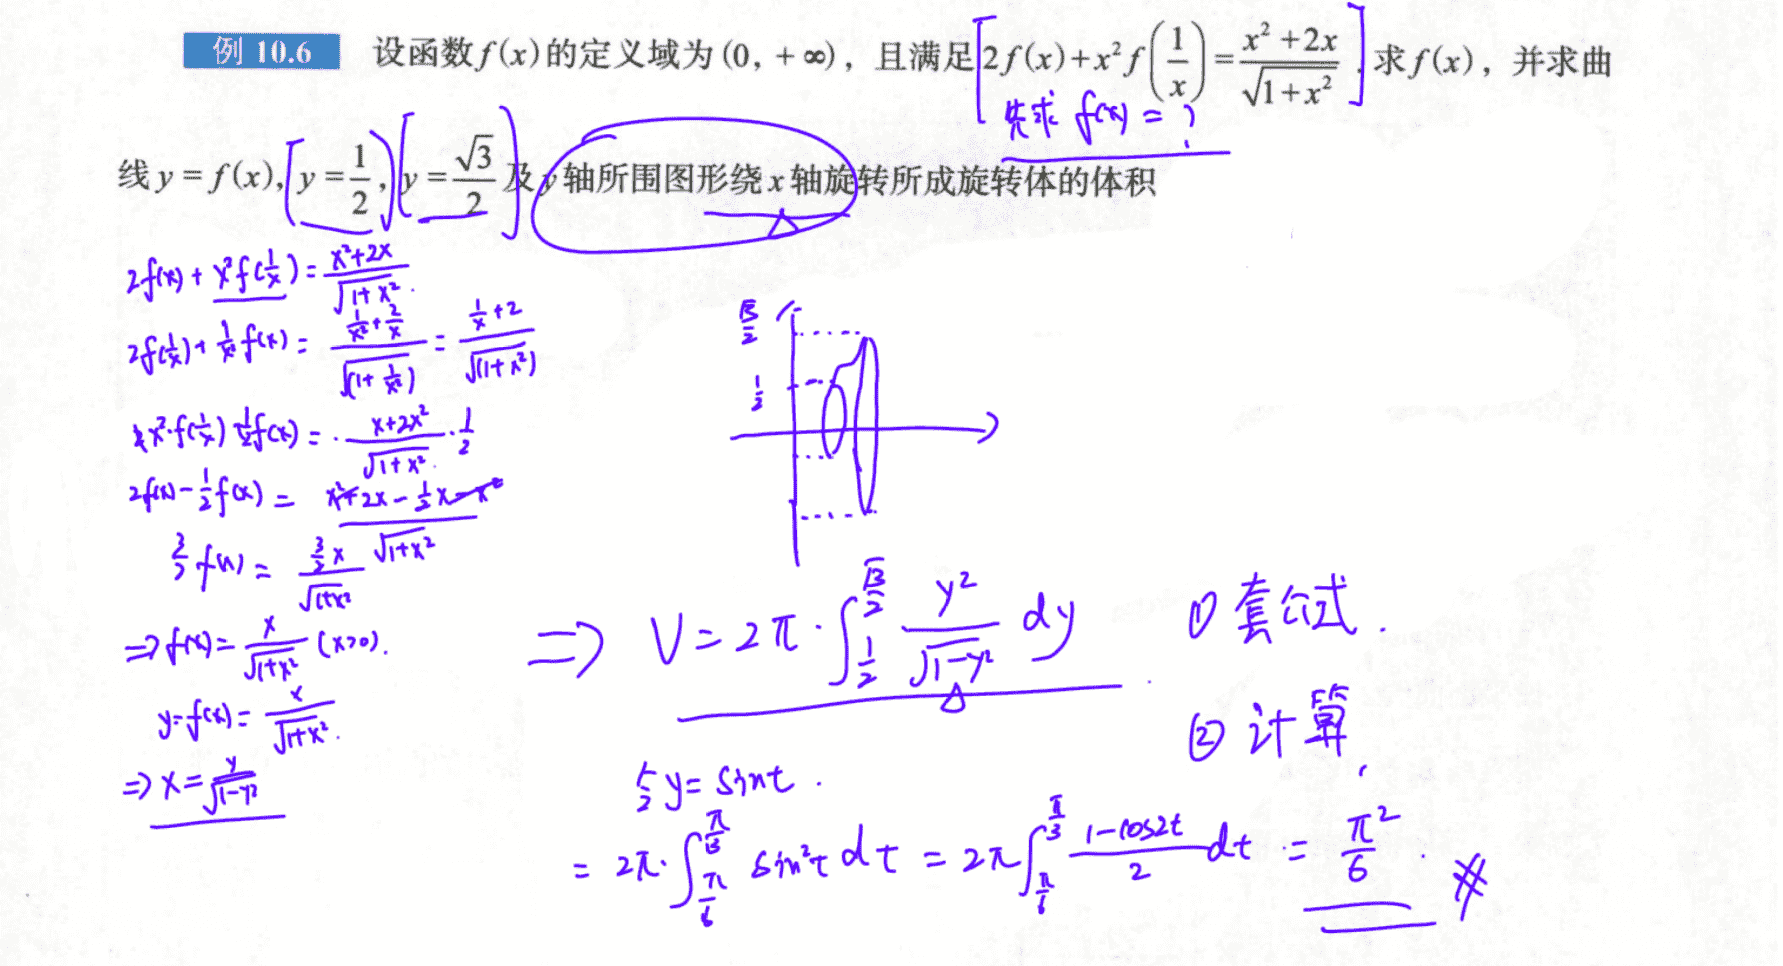 例 10.6 设函数 f(x) 的定义域为 (0, +∞), 且满足 2f(x)+x²f(1/x)=(x²+2x)/√(1+x²). 求 f(x), 并求曲
先求 f(x) = ?
线 y = f(x), y = 1/2, y = √3/2 及 y 轴所围图形绕 x 轴旋转所成旋转体的体积
2f(x) + x²f(1/x) = (x²+2x)/√(1+x²).
2f(1/x) + 1/x² f(x) = (1/x²+2/x)/√(1+1/x²) = (1/x+2)/√(1+x²)
x²·f(1/x) 1/2f(x) = · (x+2x²)/√(1+x²) · 1/2
2f(x) - 1/2 f(x) = (x²+2x-1/2x-x²)/√(1+x²)
3/2 f(x) = (3/2 x)/√(1+x²)
⇒ f(x) = x/√(1+x²) (x>0).
y=f(x) = x/√(1+x²).
⇒ x = y/√(1-y²)
√3/2
1/2
⇒ V = 2π · ∫_{1/2}^{√3/2} y²/√(1-y²) dy
① 套公式.
② 计算.
令 y = sint.
= 2π · ∫_{π/6}^{π/3} sin²t dt = 2π ∫_{π/6}^{π/3} (1-cos2t)/2 dt = π²/6. #